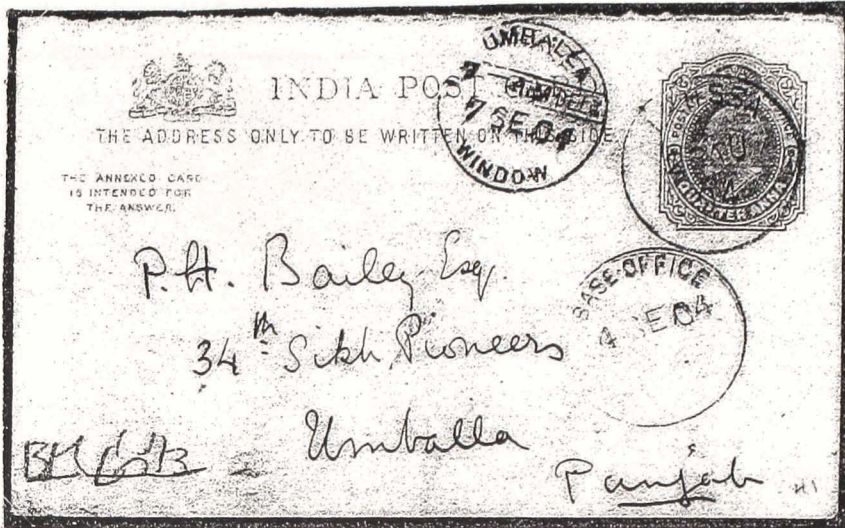 INDIA POST
THE ADDRESS ONLY TO BE WRITTEN ON THIS SIDE
THE ANNEXED CARD
IS INTENDED FOR
THE ANSWER.
UMBALLA
7 SE 04
WINDOW
QUARTER ANNA
BASE OFFICE
4 SE 04
P. H. Bailey Esq.
34th Sikh Pioneers
Umballa
Panjab